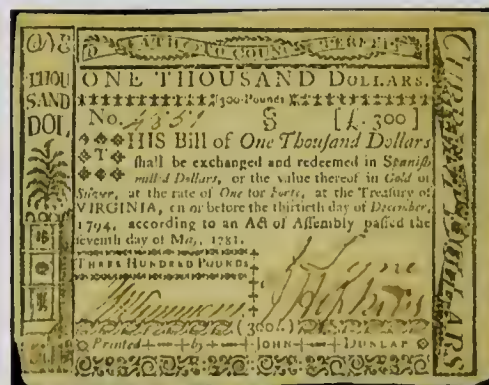 ONE
THOU
SAND
DOL.
DEATH TO COUNTERFEIT
ONE THOUSAND DOLLARS.
(300-Pounds)
No. 4357 S [£. 300]
THIS Bill of One Thousand Dollars
shall be exchanged and redeemed in Spanish
mill'd Dollars, or the value thereof in Gold or
Silver, at the rate of One for Forty, at the Treasury of
VIRGINIA, on or before the thirtieth day of December,
1794, according to an Act of Assembly passed the
seventh day of May, 1781.
THREE HUNDRED POUNDS
J Lyne
J Hopkins
(300l.)
Printed by JOHN DUNLAP